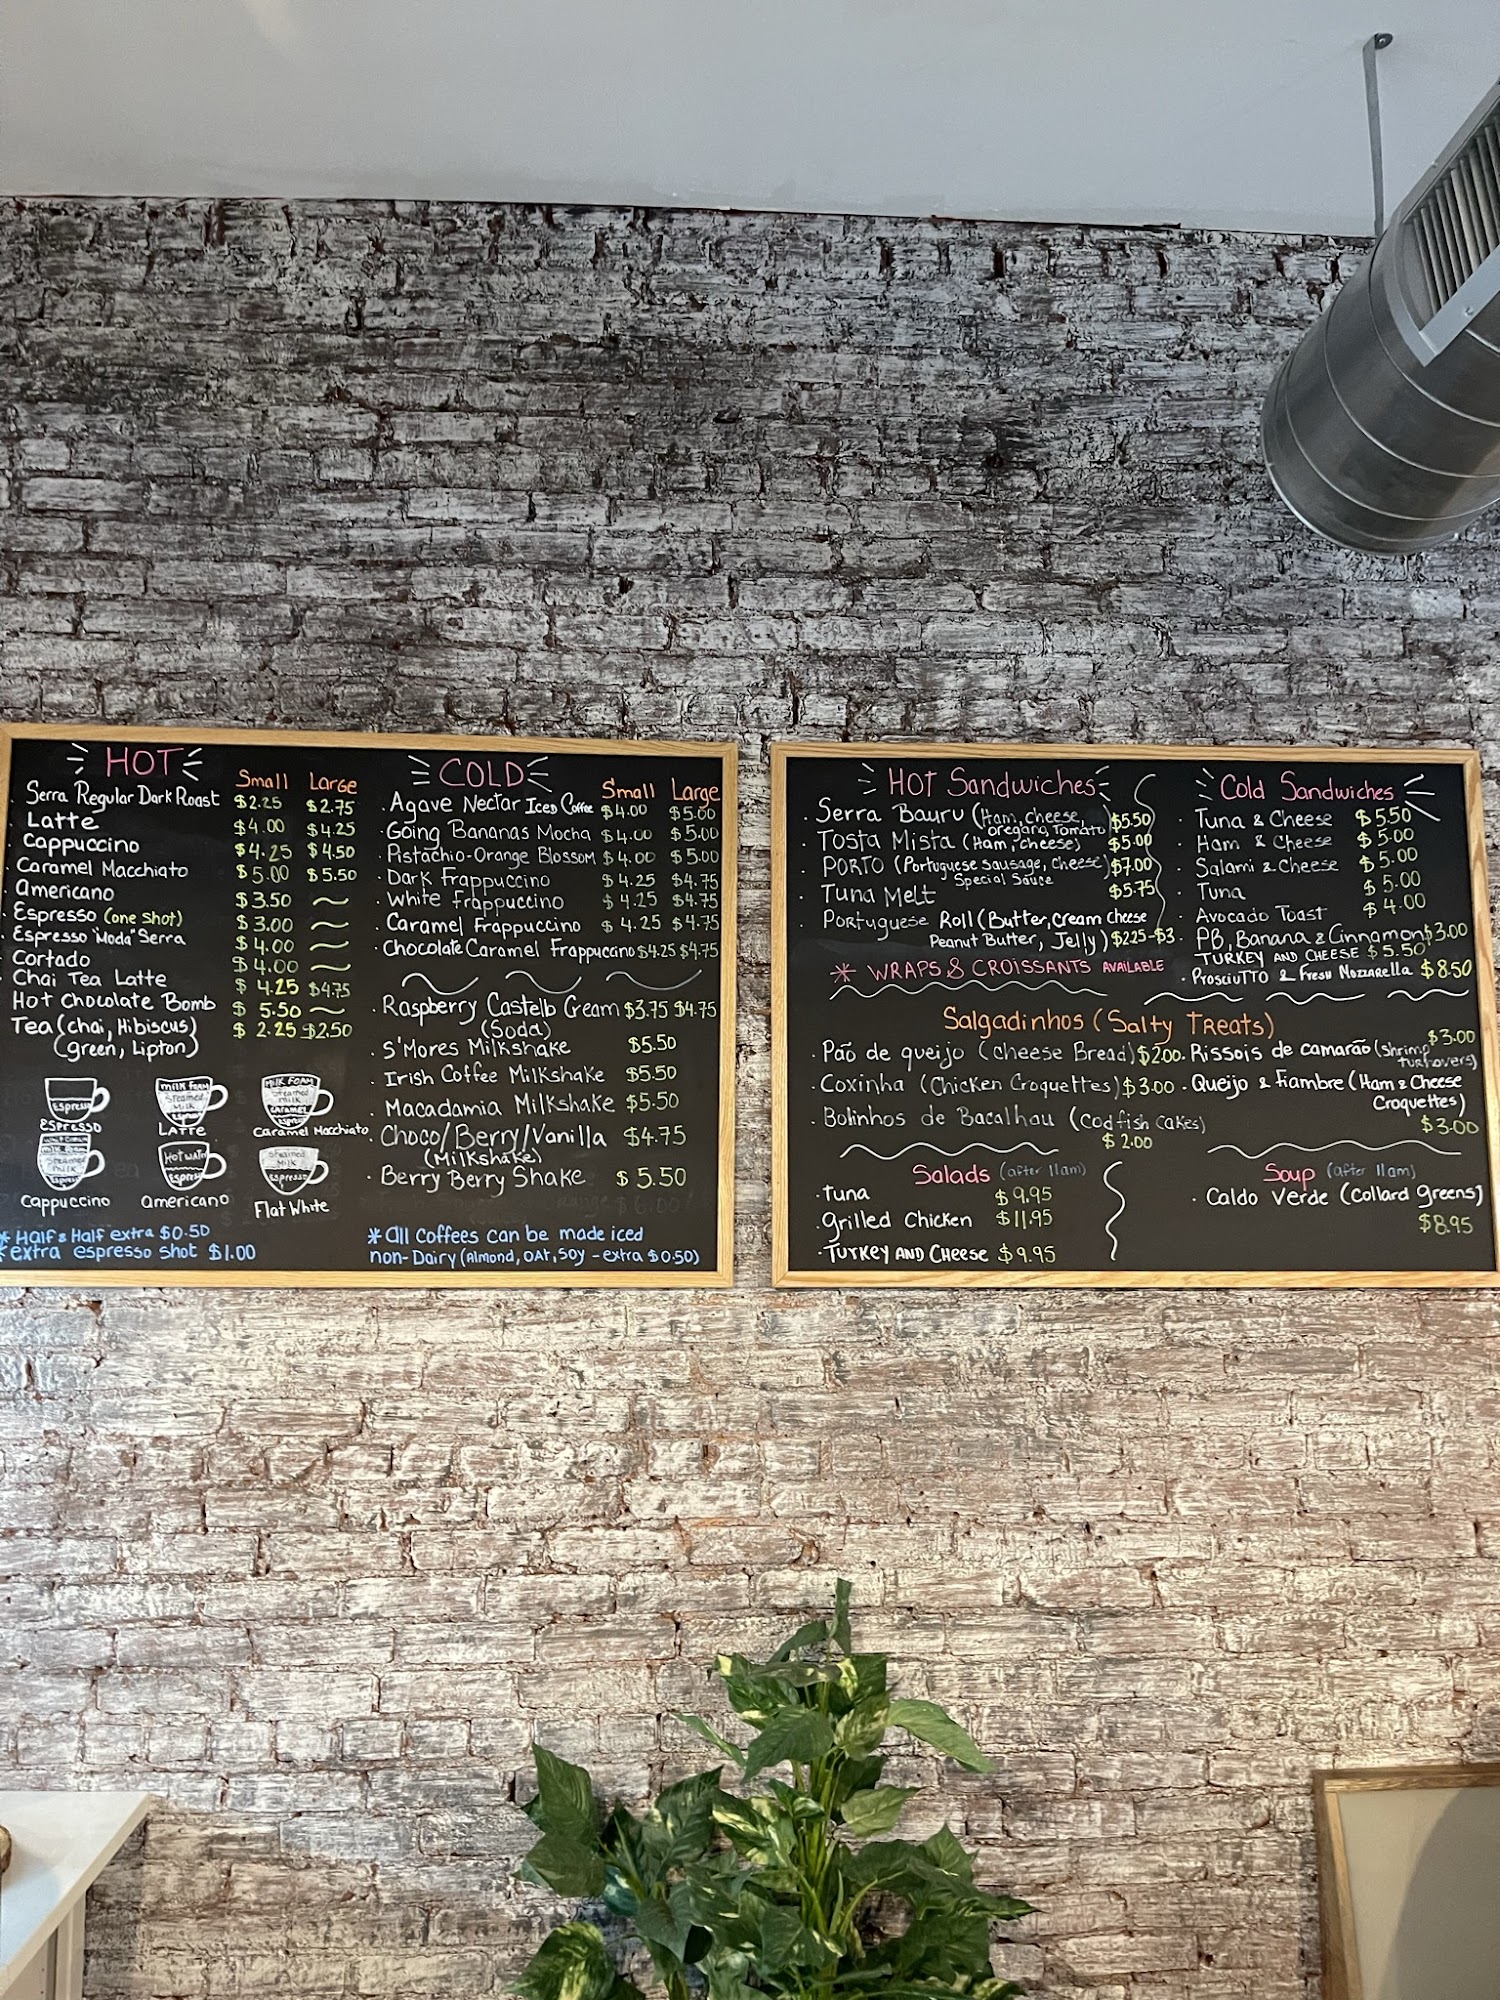 HOT
Small Large
Serra Regular Dark Roast $2.25 $2.75
Latte $4.00 $4.25
Cappuccino $4.25 $4.50
Caramel Macchiato $5.00 $5.50
Americano $3.50 ~
Espresso (one shot) $3.00 ~
Espresso "Moda" Serra $4.00 ~
Cortado $4.00 ~
Chai Tea Latte $4.25 $4.75
Hot Chocolate Bomb $5.50 ~
Tea (chai, Hibiscus) $2.25 $2.50
(green, Lipton)
Espresso
ESPRESSO
milk foam
Steamed
Milk
Espresso
LATTE
MILK FOAM
Steamed
milk
CARAMEL
Espresso
Caramel Macchiato
milk foam
Steamed
milk
Espresso
Cappuccino
HOT WATER
Espresso
Americano
Steamed
MILK
Espresso
Flat White
* Half & Half extra $0.50
* extra espresso shot $1.00
COLD
Small Large
· Agave Nectar Iced Coffee $4.00 $5.00
· Going Bananas Mocha $4.00 $5.00
· Pistachio-Orange Blossom $4.00 $5.00
· Dark Frappuccino $4.25 $4.75
· White Frappuccino $4.25 $4.75
· Caramel Frappuccino $4.25 $4.75
· Chocolate Caramel Frappuccino $4.25 $4.75
· Raspberry Castelo Cream $3.75 $4.75
(Soda)
· S'Mores Milkshake $5.50
· Irish Coffee Milkshake $5.50
· Macadamia Milkshake $5.50
· Choco/Berry/Vanilla $4.75
(Milkshake)
· Berry Berry Shake $5.50
* all coffees can be made iced
non-Dairy (Almond, OAt, Soy - extra $0.50)
HOT Sandwiches
· Serra Bauru (Ham, cheese, $5.50
oregano, Tomato)
· Tosta Mista (Ham, cheese) $5.00
· PORTO (Portuguese sausage, cheese) $7.00
Special Sauce
· Tuna Melt $5.75
· Portuguese Roll (Butter, Cream cheese
Peanut Butter, Jelly) $2.25-$3
* WRAPS & CROISSANTS AVAILABLE
Cold Sandwiches
· Tuna & Cheese $5.50
· Ham & Cheese $5.00
· Salami & Cheese $5.00
· Tuna $5.00
· Avocado Toast $4.00
· PB, Banana & Cinnamon $3.00
TURKEY AND CHEESE $5.50
· ProsciuTTO & Fresh Mozzarella $8.50
Salgadinhos (Salty Treats)
· Pão de queijo (Cheese Bread) $2.00
· Coxinha (Chicken Croquettes) $3.00
· Bolinhos de Bacalhau (Codfish cakes)
$2.00
· Rissois de camarão (shrimp $3.00
turnovers)
· Queijo & Fiambre (Ham & Cheese
Croquettes)
$3.00
Salads (after 11am)
· Tuna $9.95
· Grilled Chicken $11.95
· TURKEY AND Cheese $9.95
Soup (after 11am)
· Caldo Verde (Collard greens)
$8.95